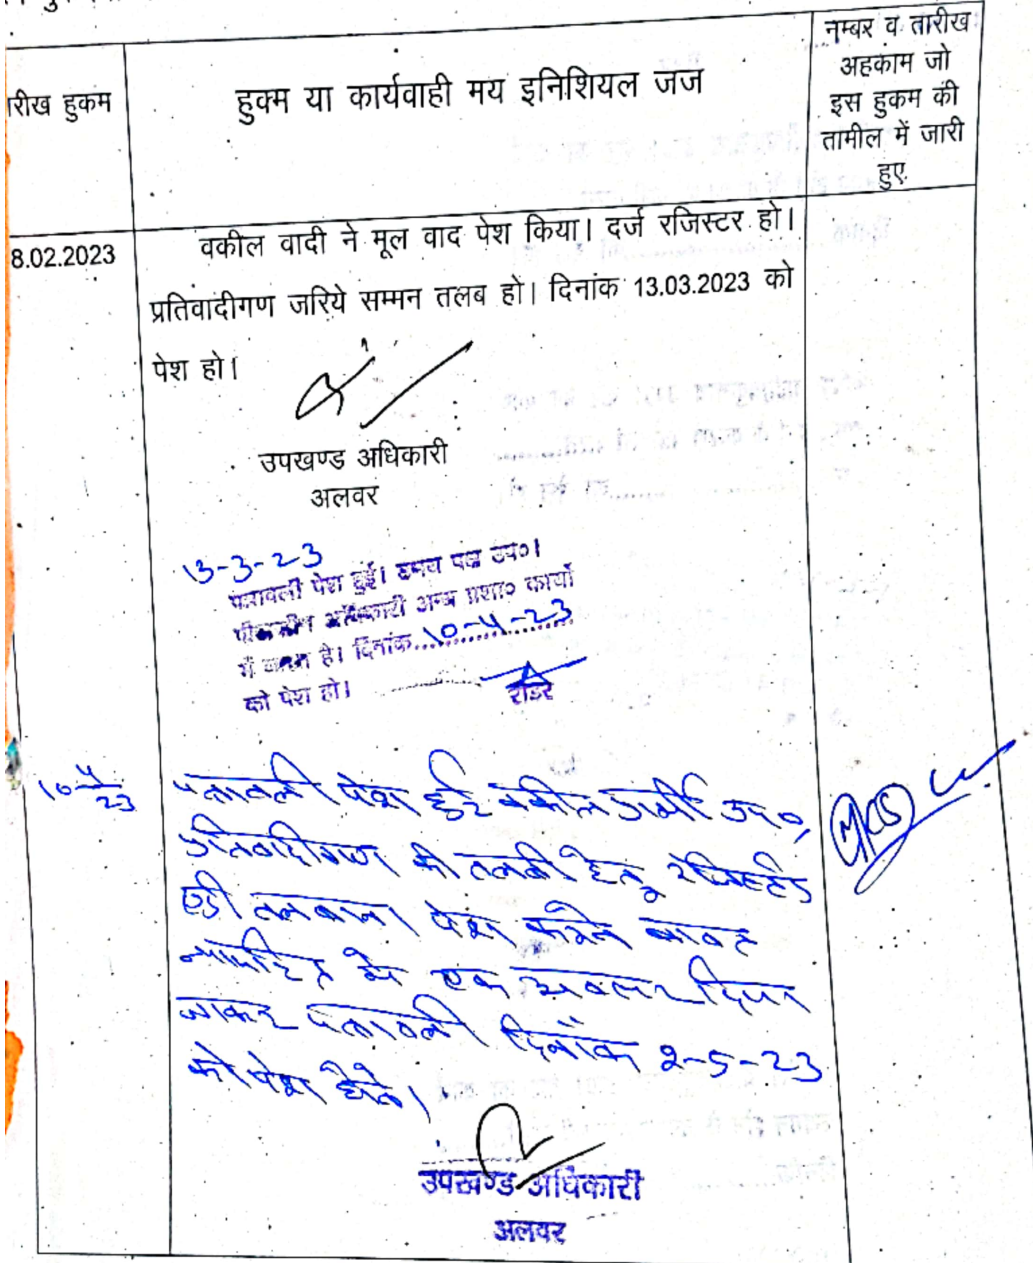 रीख हुकम
हुक्म या कार्यवाही मय इनिशियल जज
नम्बर व तारीख
अहकाम जो
इस हुकम की
तामील में जारी
हुए
8.02.2023
वकील वादी ने मूल वाद पेश किया। दर्ज रजिस्टर हो।
प्रतिवादीगण जरिये सम्मन तलब हो। दिनांक 13.03.2023 को
पेश हो।
उपखण्ड अधिकारी
अलवर
13-3-23
पत्रावली पेश हुई। उभय पक्ष उप०।
पीठासीन अधिकारी अन्य प्रशा० कार्यो
में व्यस्त है। दिनांक 10-4-23
को पेश हो।
रीडर
10-4-23
पत्रावली पेश हुई वकील प्रार्थी उप०,
प्रतिवादीगण की तलबी हेतू रजिस्टर्ड
एडी तलबाना पेश करने बाबत
न्यायहित में एक अवसर दिया
जाकर पत्रावली दिनाँक 2-5-23
को पेश होवे।
उपखण्ड अधिकारी
अलवर